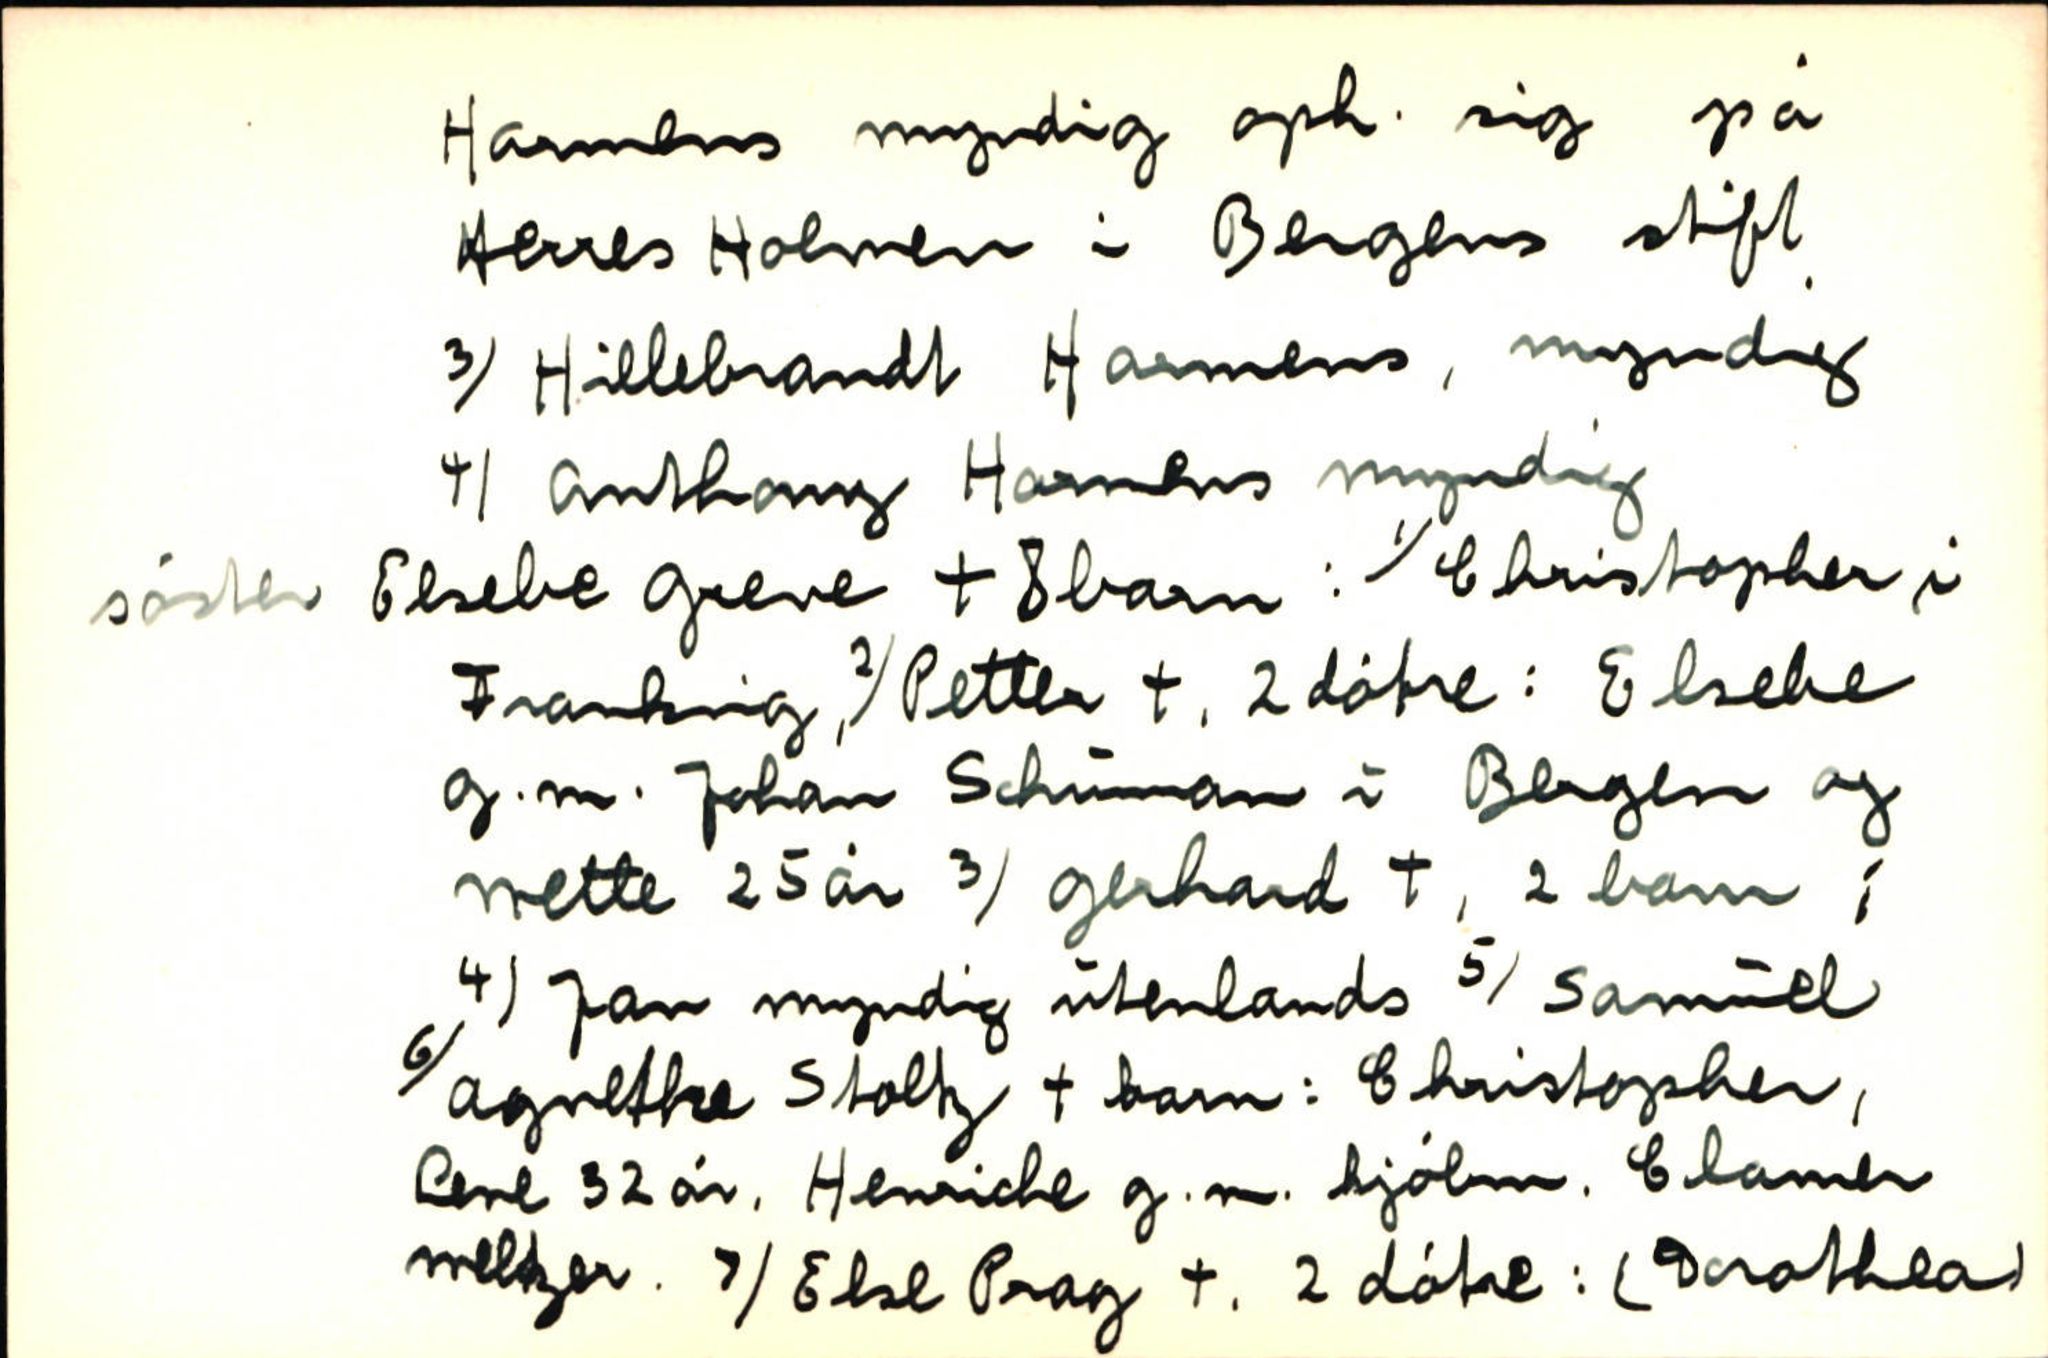 Harmens myndig oph. sig på
Herres Holmen i Bergens stift.
3/ Hillebrandt Harmens, myndig
4/ Anthony Harmens myndig
söster Elsebe Greve + 8 barn : 1/ Christopher i
Frankrig, 2/ Petter +, 2 dötre : Elsebe
g.m. Johan Schūman i Bergen og
Mette 25 år 3/ Gerhard +, 2 barn ;
4) Jan myndig ūtenlands 5/ Samūel
6/ Agnethe Stoltz + barn : Christopher,
Lene 32 år, Henriche g.m. kjöbm. Clamer
Meltzer. 7/ Else Prag +. 2 dötre : (Dorothea)